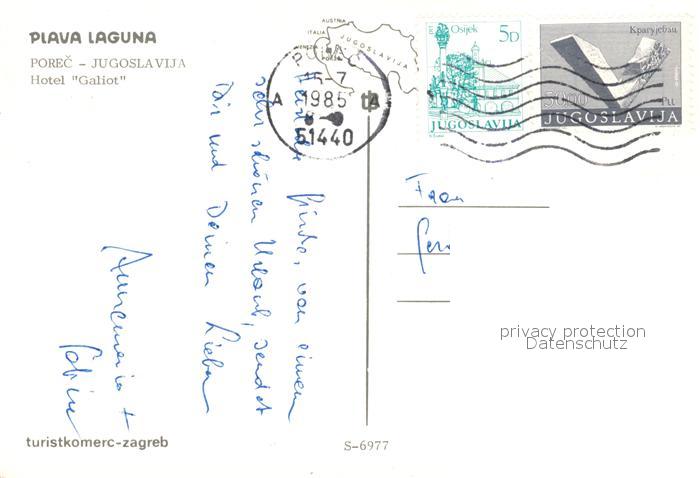 PLAVA LAGUNA
POREČ – JUGOSLAVIJA
Hotel "Galiot"
AUSTRIA
ITALIA
JUGOSLAVIJA
15-7
A 1985
51440
Osijek 5D
JUGOSLAVIJA
Крагујевац
JUGOSLAVIJA
Grüße, von einem
sehr schönen Urlaub, sendet
Dir und Deinen Lieben
Annemarie +
Frau
privacy protection
Datenschutz
turistkomerc-zagreb
S-6977